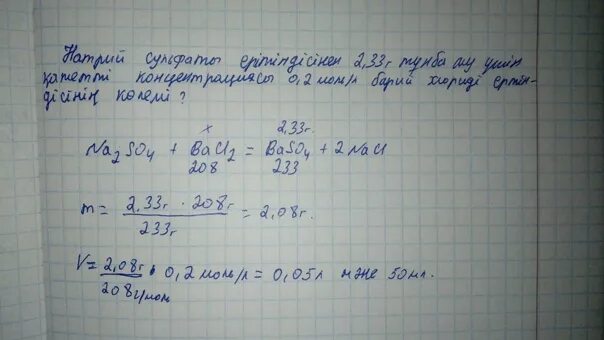 Натрий сульфаты ерітіндісінен 2,33г тұнба алу үшін
қажетті концентрациясы 0,2 моль/л барий хлориді ерітін-
дісінің көлемі?
x 2,33г.
Na2SO4 + BaCl2 = BaSO4 + 2NaCl
208 233
m = 2,33г · 208г / 233г = 2,08г.
V = 2,08г / 208г/моль · 0,2 моль/л = 0,05л және 50мл.